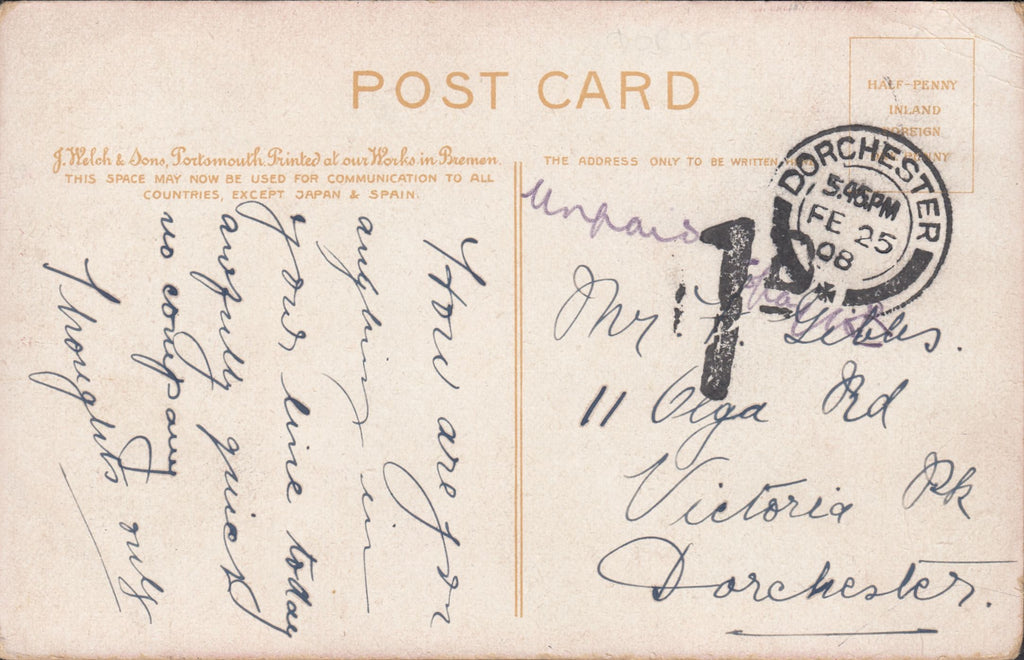 POST CARD
HALF-PENNY
INLAND
FOREIGN
PENNY
J. Welch & Sons, Portsmouth. Printed at our Works in Bremen.
THIS SPACE MAY NOW BE USED FOR COMMUNICATION TO ALL
COUNTRIES, EXCEPT JAPAN & SPAIN.
THE ADDRESS ONLY TO BE WRITTEN
DORCHESTER
5.45PM
FE 25
08
Unpaid
1D
Mr F. Gibbs.
11 Olga Rd
Victoria Pk
Dorchester.
How are you
anything in
your line today
awfully quiet
no company
Thoughts only